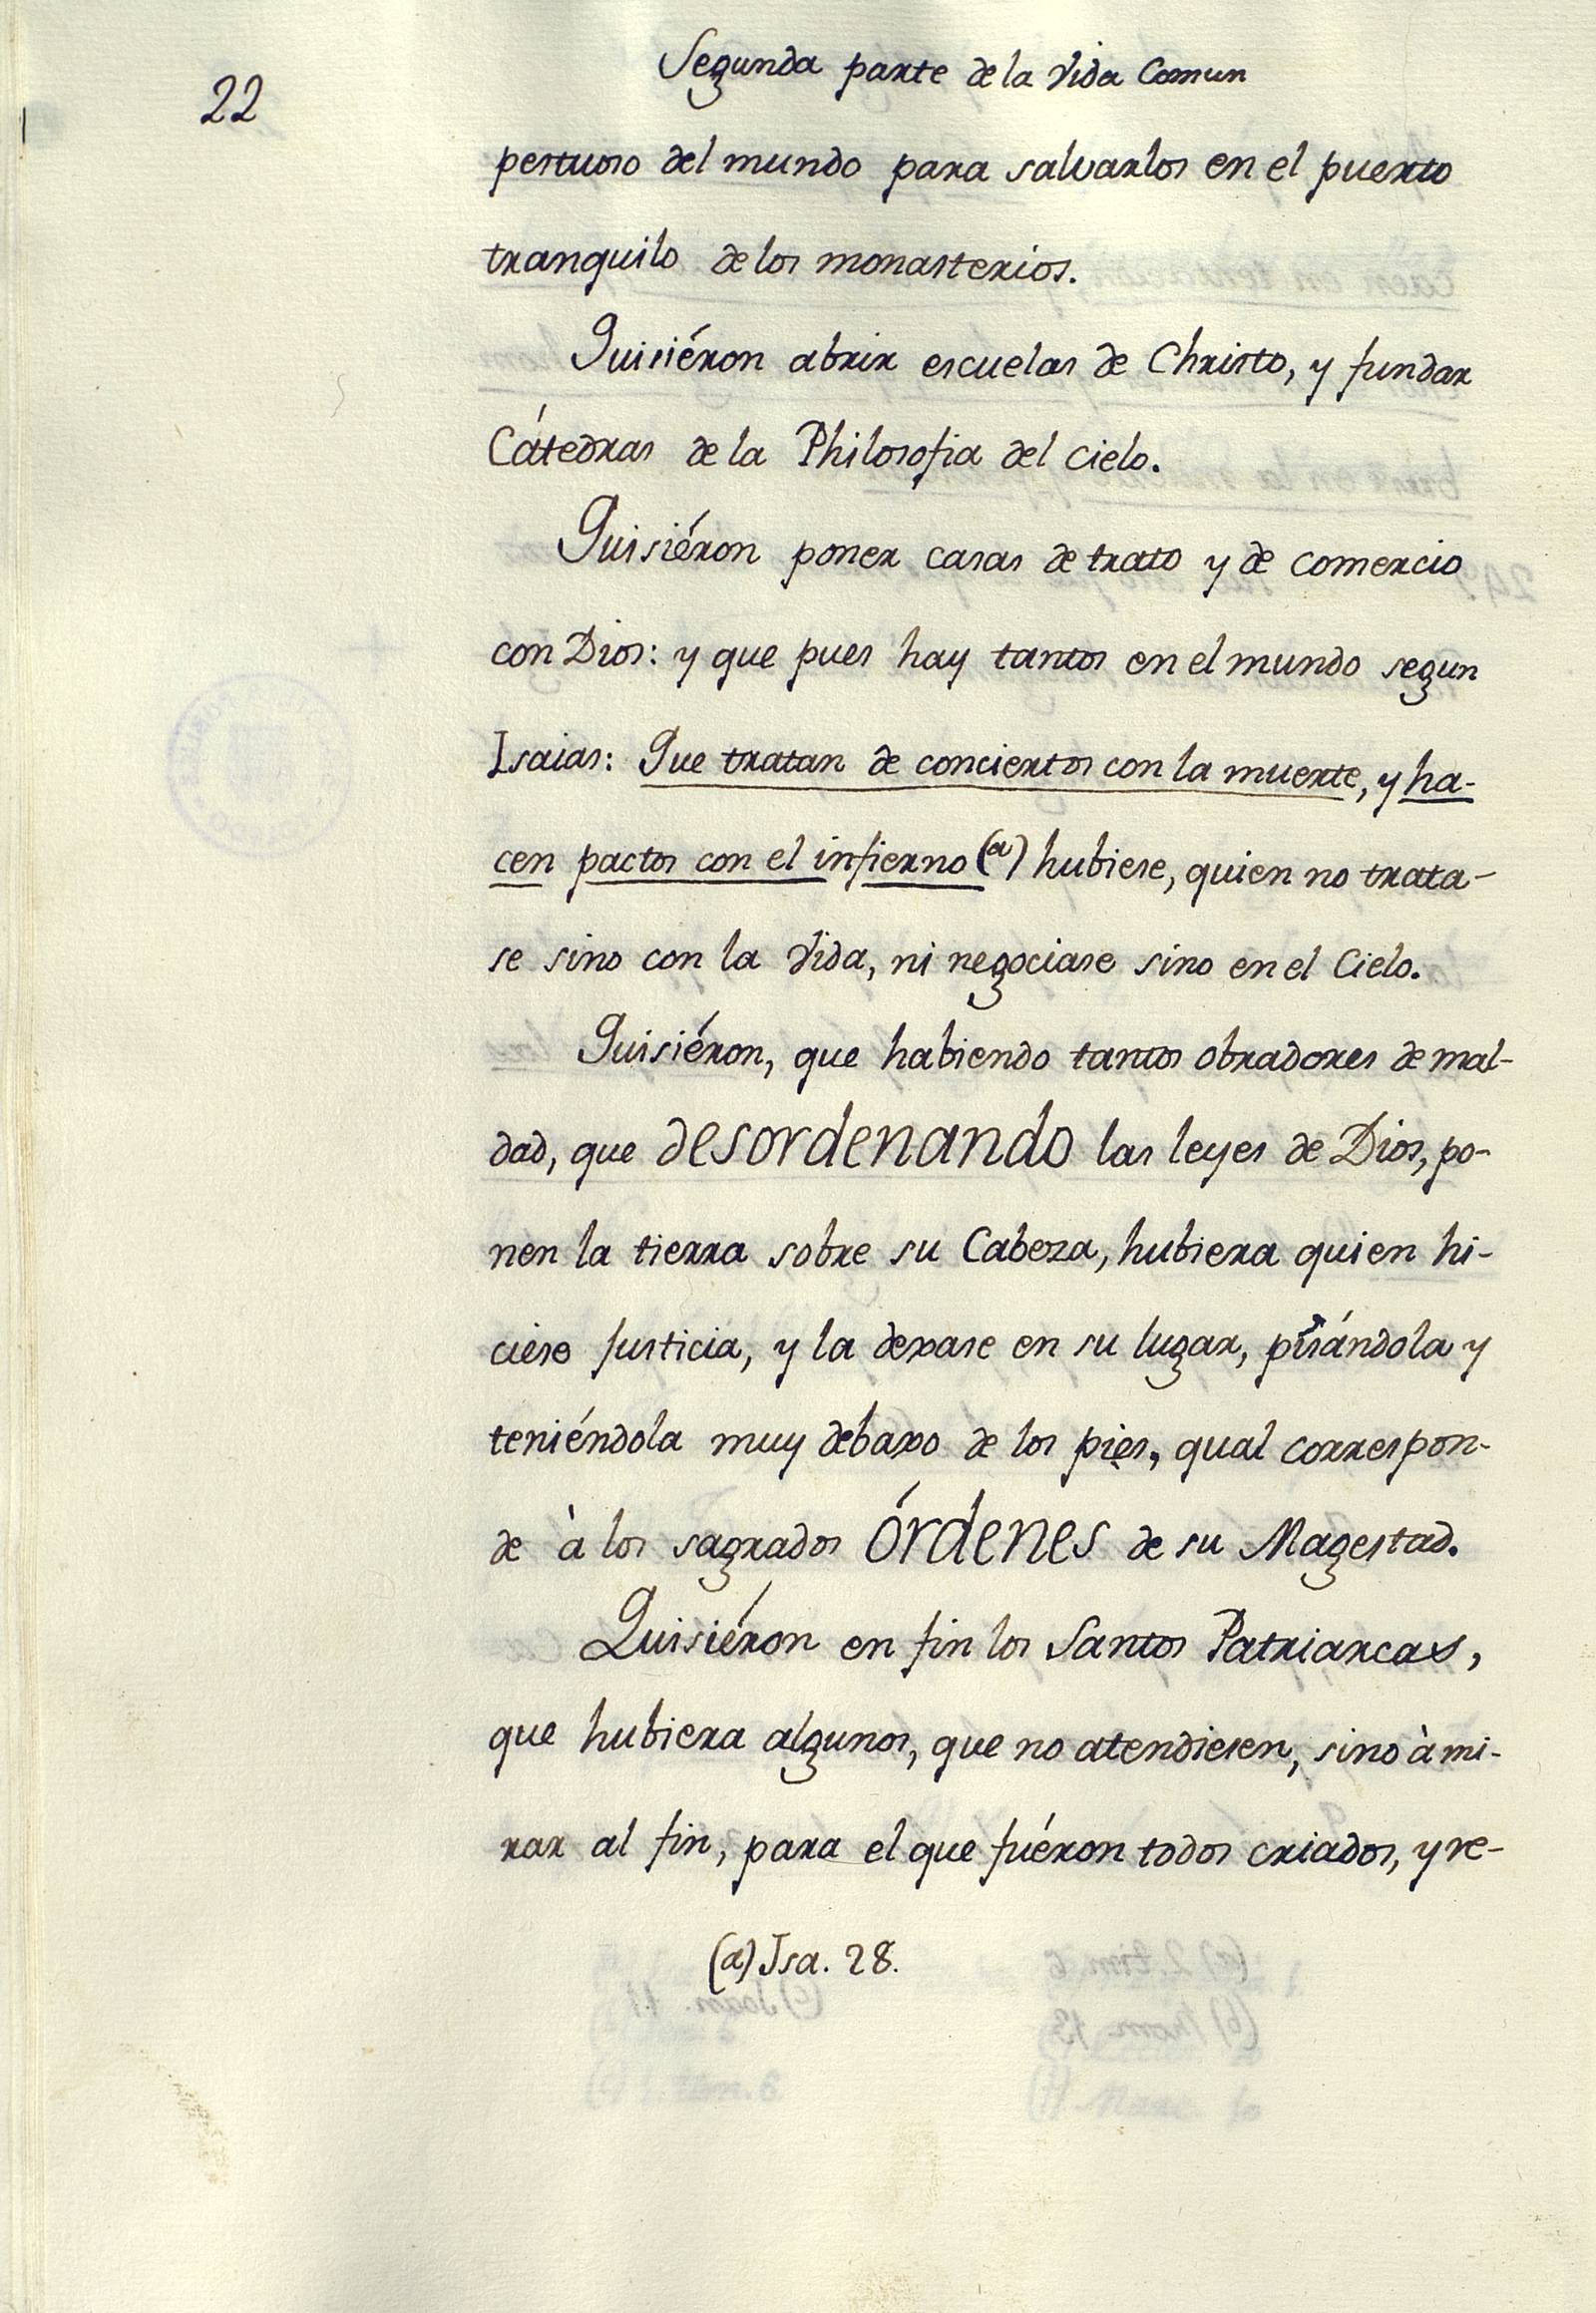 Segunda parte de la Vida Comun
22
pestuoso del mundo para salvarlos en el puerto
tranquilo de los monasterios.
Quisiéron abrir escuelas de Christo, y fundar
Cátedras de la Philosofia del Cielo.
Quisiéron poner casas de trato y de comercio
con Dios: y que pues hay tantos en el mundo segun
Isaias: Que tratan de conciertos con la muerte, y ha-
cen pactos con el infierno (a) hubiese, quien no trata-
se sino con la Vida, ni negociase sino en el Cielo.
Quisiéron, que habiendo tantos obradores de mal-
dad, que desordenando las leyes de Dios, po-
nen la tierra sobre su Cabeza, hubiera quien hi-
ciese justicia, y la dexase en su lugar, pisándola y
teniéndola muy debaxo de los pies, qual correspon-
de à los sagrados órdenes de su Magestad.
Quisiéron en fin los Santos Patriarcas,
que hubiera algunos, que no atendiesen, sino à mi-
rar al fin, para el que fuéron todos criados, y re-
(a) Isa. 28.